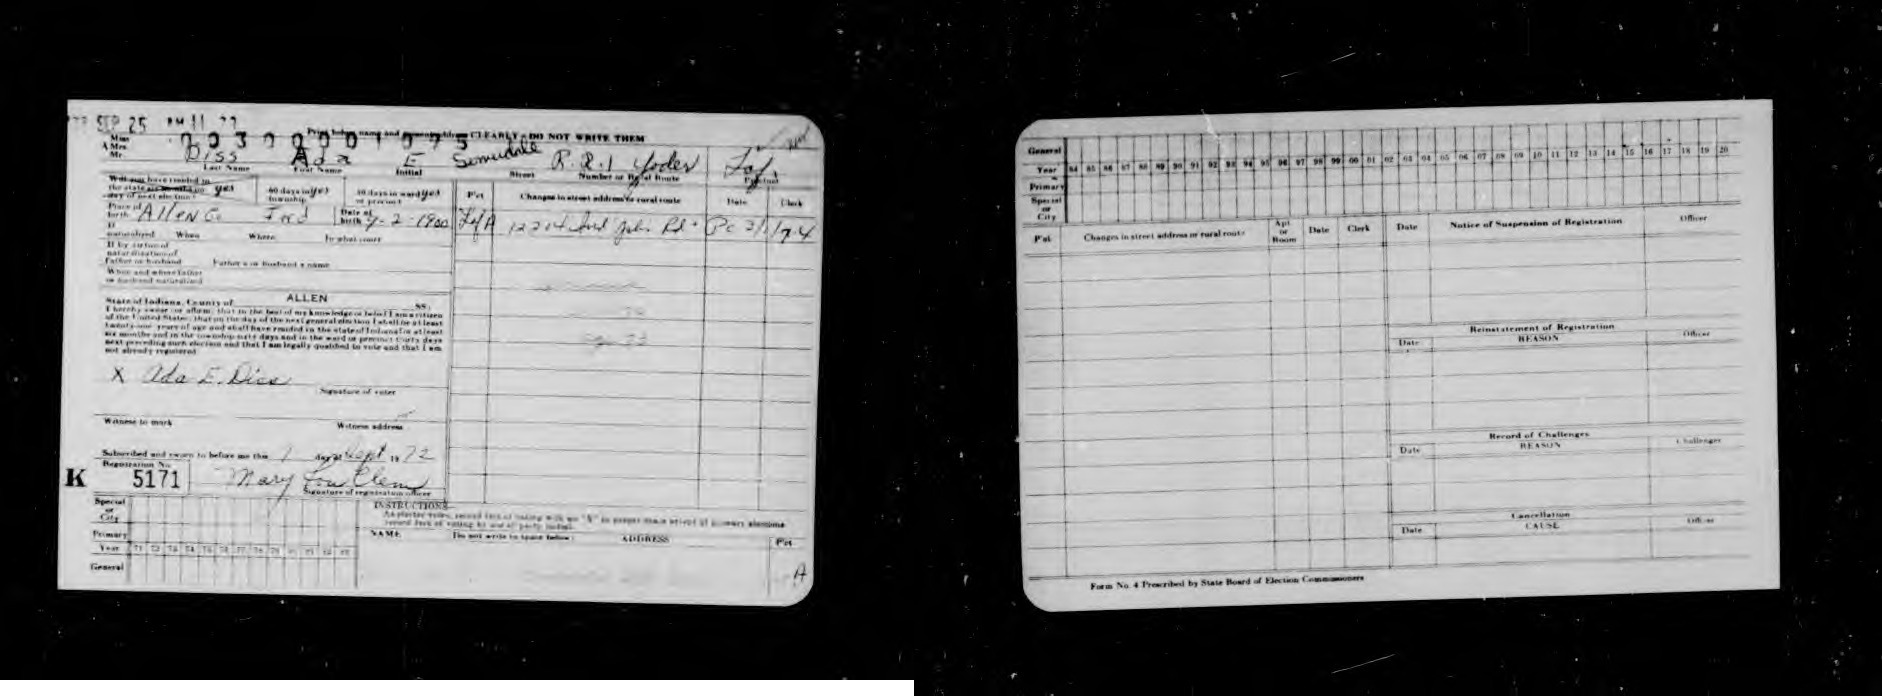 SEP 25 PM 11 77
Print below name and CLEARLY - DO NOT WRITE THEM
Miss
A Mrs.
Mr.
Diss Ada E R.R.1 Yoder Laf
Last Name First Name Initial Street Number or Rural Route
Will you have resided in
the state six months on yes 60 days in yes 30 days in ward yes
day of next election? township or precinct
Place of
birth Allen Co Ind Date of birth 9-2-1900
If
naturalized When Where In what court
If by virtue of
naturalization of
Father or husband Father's or husband's name
When and where father
or husband naturalized
State of Indiana, County of ALLEN SS.
I hereby swear (or affirm) that to the best of my knowledge or belief I am a citizen
of the United States; that on the day of the next general election I shall be at least
twenty-one years of age and shall have resided in the state of Indiana for at least
six months and in the township sixty days and in the ward or precinct thirty days
next preceding such election and that I am legally qualified to vote and that I am
not already registered
X Ada E. Diss
Signature of voter
Witness to mark Witness address
Subscribed and sworn to before me this 1 day of Sept 1972
Registration No.
K 5171 Mary Lou Clem
Signature of registration officer
Pct Changes in street address or rural route Date Clerk
Laf A 12204 Rd Pc 2/1/74
Special
or
City
Primary
Year 71 72 73 74 75 76 77 78 79 80 81 82 83
General
INSTRUCTIONS
NAME (Do not write in space below) ADDRESS Pct
A
General
Year 84 85 86 87 88 89 90 91 92 93 94 95 96 97 98 99 00 01 02 03 04 05 06 07 08 09 10 11 12 13 14 15 16 17 18 19 20
Primary
Special
or
City
Pct Changes in street address or rural route Apt or Room Date Clerk
Date Notice of Suspension of Registration Officer
Reinstatement of Registration
Date REASON Officer
Record of Challenges
Date REASON Challenger
Cancellation
Date CAUSE Officer
Form No. 4 Prescribed by State Board of Election Commissioners